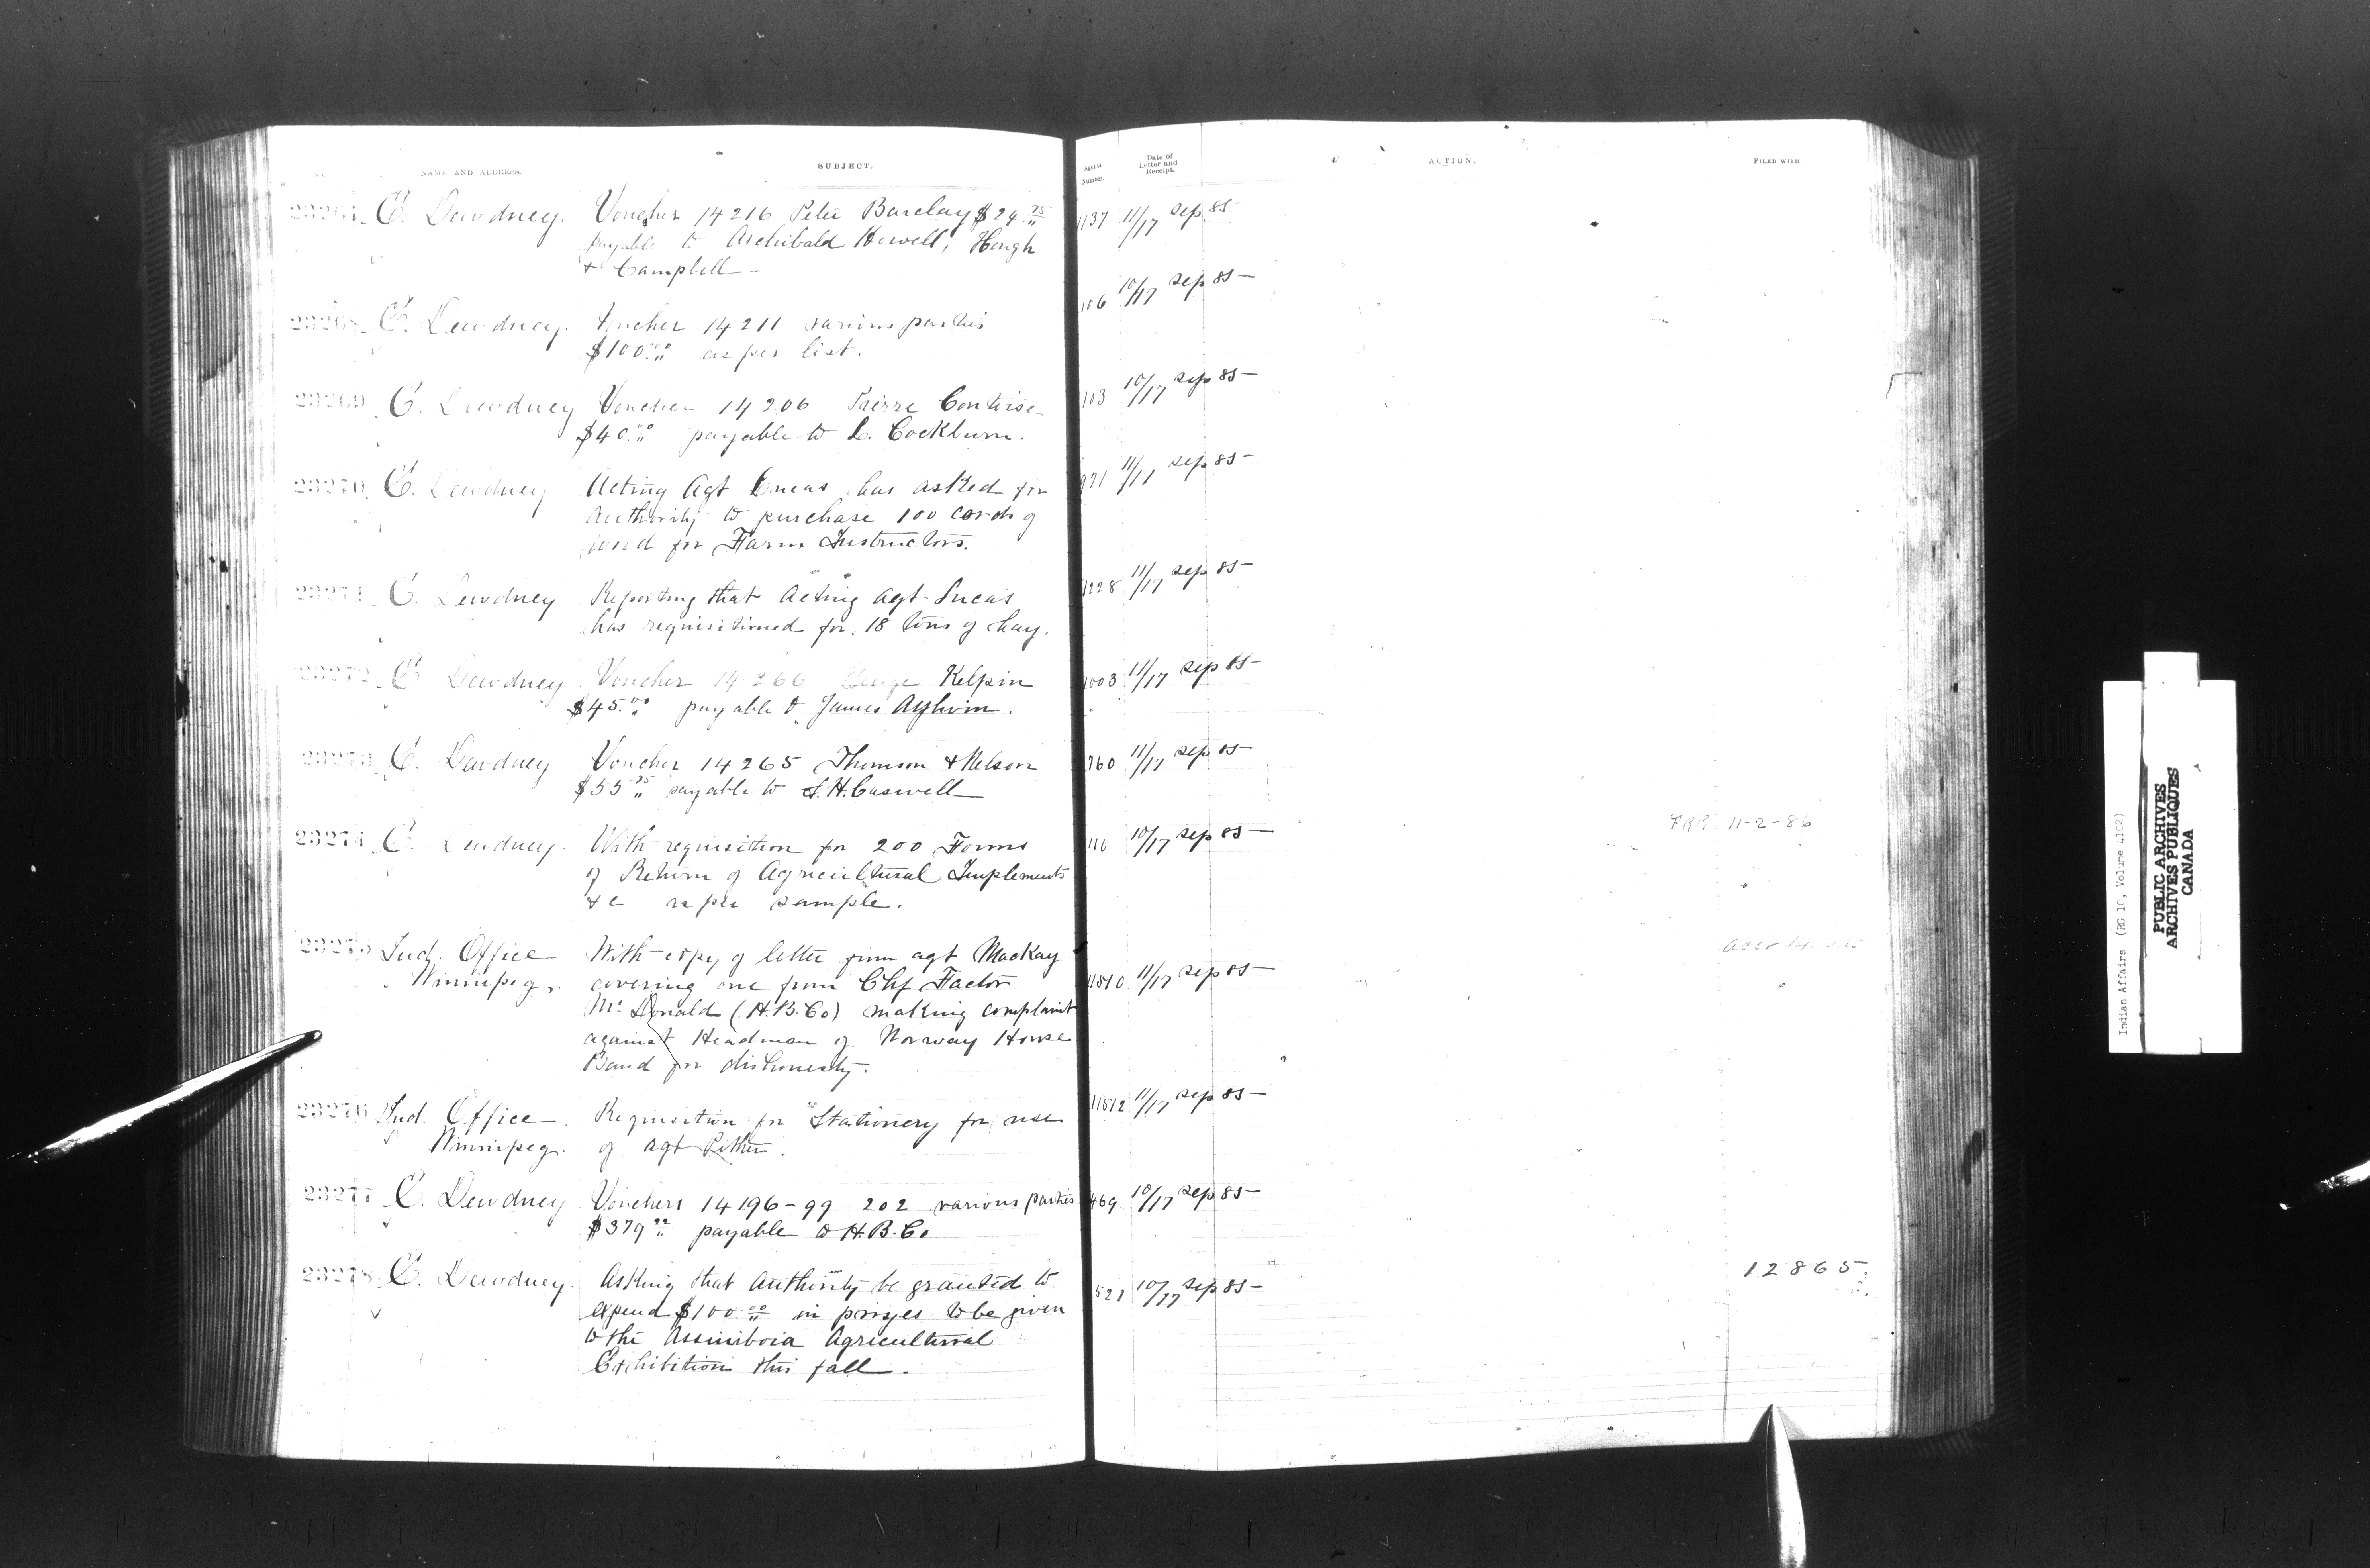 NAME AND ADDRESS.
SUBJECT.
Agents Number.
Date of Letter and Receipt.
ACTION.
FILED WITH
23267 E. Dewdney. Voucher 14216 Peter Barclay $24.75 1137 11/17 Sep 85-
payable to Archibald Howell, Hough
+ Campbell -
23268 E. Dewdney. Voucher 14211 various parties 106 10/17 Sep 85-
$100.00 as per list.
23269 E. Dewdney Voucher 14206 Pierre 103 10/17 Sep 85-
$40.00 payable to L. Cockburn.
23270 E. Dewdney Acting Agt Lucas has asked for 971 11/17 Sep 85-
Authority to purchase 100 cords of
wood for Farm Instructors.
23271 E. Dewdney Reporting that Acting Agt. Lucas 1228 11/17 Sep 85-
has requisitioned for 18 tons of hay.
23272 E. Dewdney Voucher 14266 George Kelpin 1003 11/17 Sep 85-
$45.00 payable to James
23273 E. Dewdney Voucher 14265 Thomson + Nelson 760 11/17 Sep 85-
$55 payable to S.H. Caswell
23274 E. Dewdney. With requisition for 200 Forms 110 10/17 Sep 85- 11-2-86
of Return of Agricultural Implements
+c as per sample.
23275 Ind. Office With copy of letter from agt MacKay 11510 11/17 Sep 85-
Winnipeg. covering one from Chf Factor
Mc Donald (H.B.Co) making complaint
against Headman of Norway House
Band for dishonesty.
23276 Ind. Office Requisition for Stationery for use 11512 11/17 Sep 85-
Winnipeg. of agt Pither.
23277 E. Dewdney Vouchers 14196-99-202 various parties 469 10/17 Sep 85-
$379 payable to H.B.Co
23278 E. Dewdney. Asking that Authority be granted to 521 10/17 Sep 85- 12865.
expend $100.00 in prizes to be given
to the Assiniboia Agricultural
Exhibition this fall.
Indian Affairs (RG 10, Volume 4102)
PUBLIC ARCHIVES
ARCHIVES PUBLIQUES
CANADA